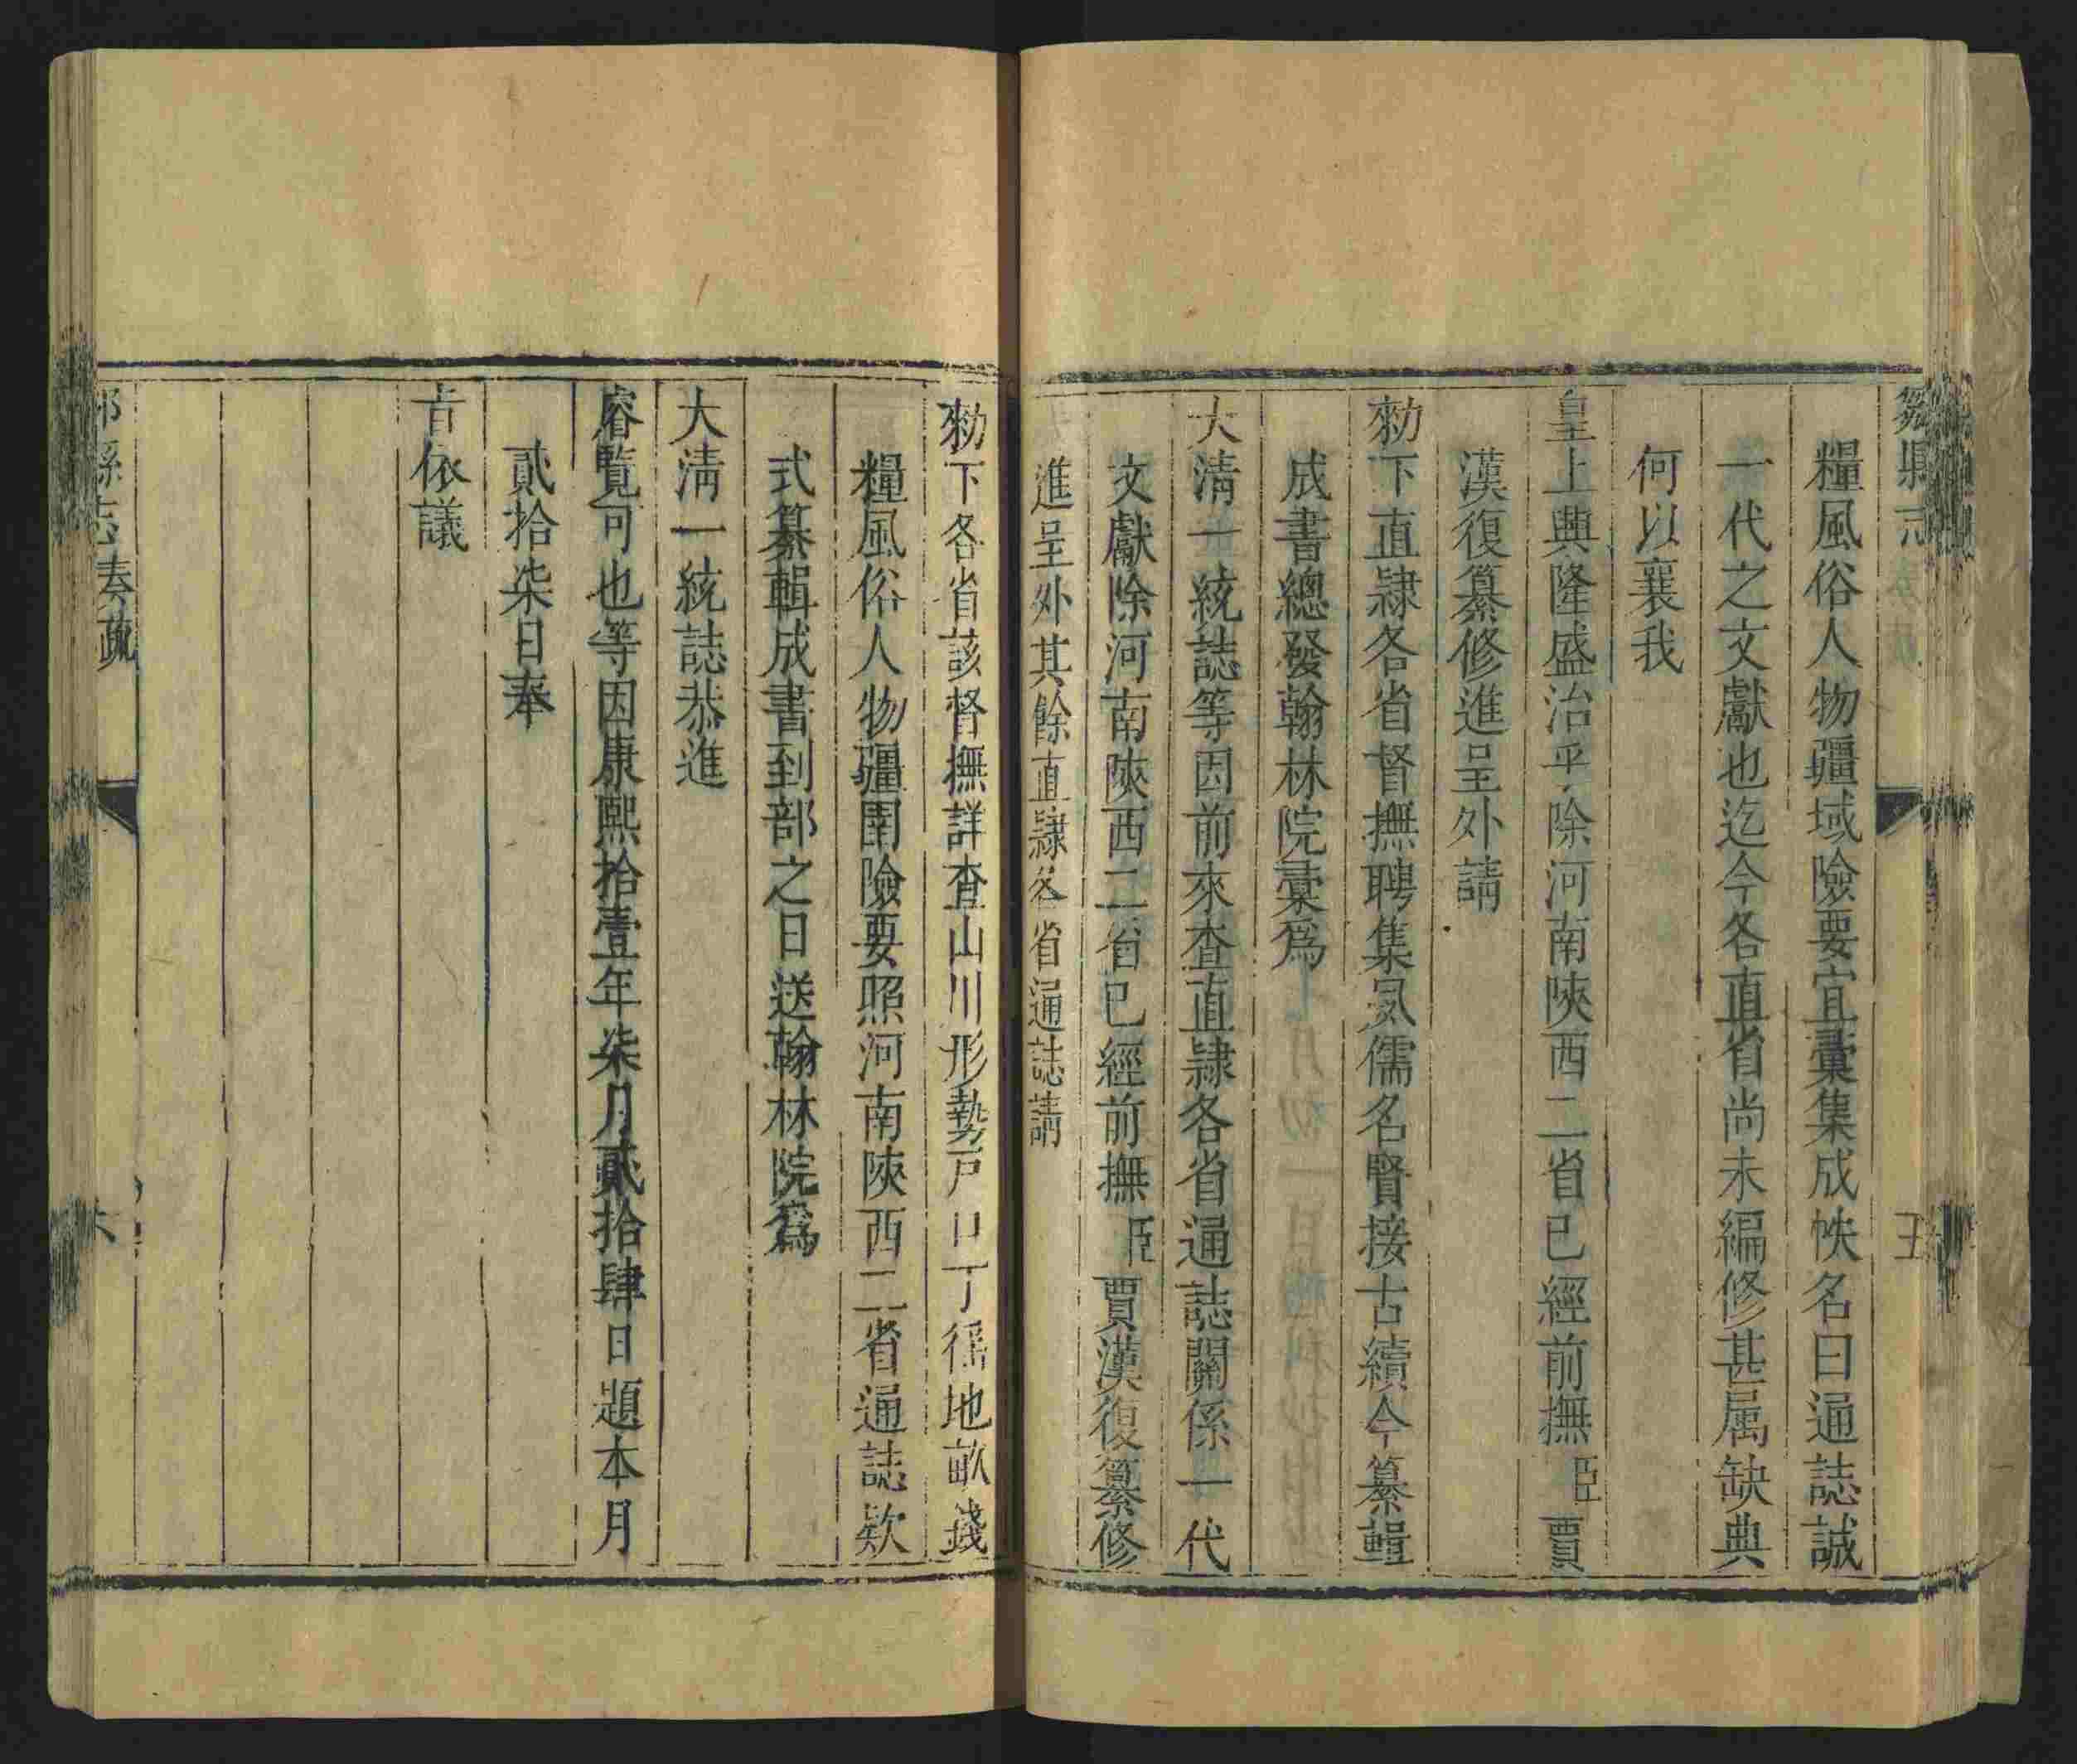 糧風俗人物疆域險要宜彙集成帙名曰通誌誠
一代之文獻也迄今各直省尚未編修甚属缺典
何以襄我
皇上興隆盛治平除河南陝西二省已經前撫臣賈
漢復纂修進呈外請
勑下直隷各省督撫聘集夙儒名賢接古續今纂輯
成書總發翰林院彙爲
大清一統誌等因前來查直隷各省通誌關係一代
文獻除河南陝西二省已經前撫臣賈漢復纂修
進呈外其餘直隷各省通誌請
勑下各省該督撫詳查山川形勢戸口丁徭地畝錢
糧風俗人物疆圉險要照河南陝西二省通誌欵
式纂輯成書到部之日送翰林院爲
大清一統誌恭進
睿覽可也等因康熙拾壹年柒月貳拾肆日題本月
貳拾柒日奉
旨依議
縣志 奏疏